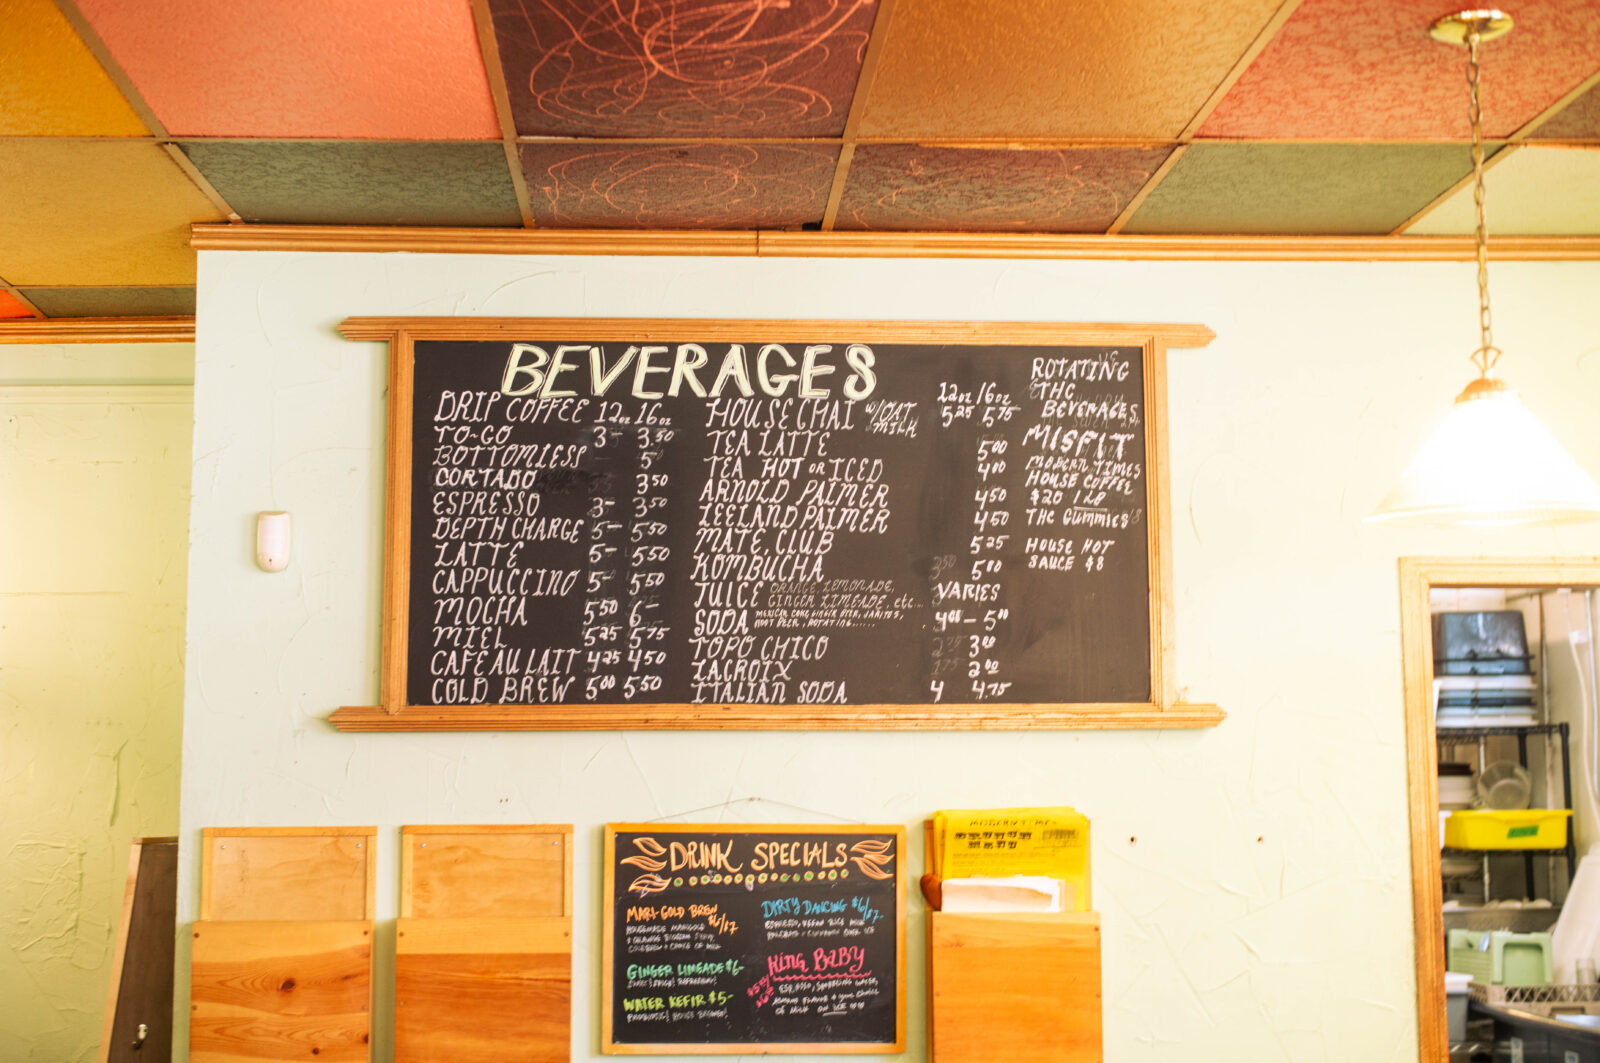 BEVERAGES
DRIP COFFEE 12oz 16oz
TO-GO 3- 3.50
BOTTOMLESS 5
CORTADO 3 50
ESPRESSO 3- 3 50
DEPTH CHARGE 5- 5 50
LATTE 5- 5 50
CAPPUCCINO 5- 5 50
MOCHA 5 50 6-
MIEL 5 25 5 75
CAFE AU LAIT 4 25 4 50
COLD BREW 5 00 5 50
12oz 16oz
HOUSE CHAI W/OAT MILK 5 25 5 75
TEA LATTE 5 00
TEA HOT OR ICED 4 00
ARNOLD PALMER 4 50
LEELAND PALMER 4 50
MATE CLUB 5 25
KOMBUCHA 5 00
JUICE ORANGE, LEMONADE, VARIES
GINGER LIMEADE, etc...
SODA MEXICAN COKE, GINGER BEER, JARITOS, 4 00 - 5 00
ROOT BEER, ROTATING......
TOPO CHICO 3 00
LACROIX 2 00
ITALIAN SODA 4 4.75
ROTATING
THC
BEVERAGES
MISFIT
MODERN TIMES
HOUSE COFFEE
$20 1LB
THC GUMMIES
HOUSE HOT
SAUCE $8
DRINK SPECIALS
MARI-GOLD BREW $6/$7
HOMEMADE MARIGOLD
& ORANGE BLOSSOM SYRUP
COLD BREW + CHOICE OF MILK
GINGER LIMEADE $6-
WATER KEFIR $5-
DIRTY DANCING $6/$7-
ESPRESSO, KEFIR RICE MILK
+ CINNAMON OVER ICE
KING BABY
ESPRESSO, SPARKLING WATER,
ALMOND FLAVOR & YOUR CHOICE
OF MILK ON ICE
MODERN TIMES